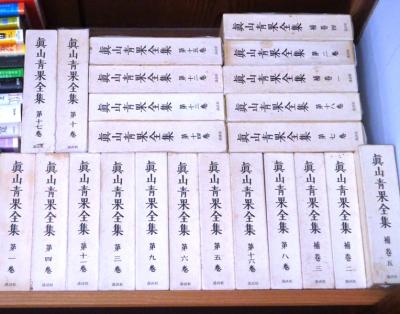 眞山青果全集 第十七巻
眞山青果全集 第十巻
眞山青果全集 第十五巻
眞山青果全集 第十二巻
眞山青果全集 第十三巻
眞山青果全集 第十四巻
眞山青果全集 補巻四
眞山青果全集 第二巻
眞山青果全集 補巻一
眞山青果全集 第十八巻
眞山青果全集 第七巻
眞山青果全集 第一巻 講談社
眞山青果全集 第四巻 講談社
眞山青果全集 第十一巻 講談社
眞山青果全集 第三巻 講談社
眞山青果全集 第九巻 講談社
眞山青果全集 第六巻 講談社
眞山青果全集 第五巻 講談社
眞山青果全集 第十六巻 講談社
眞山青果全集 第八巻 講談社
眞山青果全集 補巻三 講談社
眞山青果全集 補巻二 講談社
眞山青果全集 補巻五 講談社